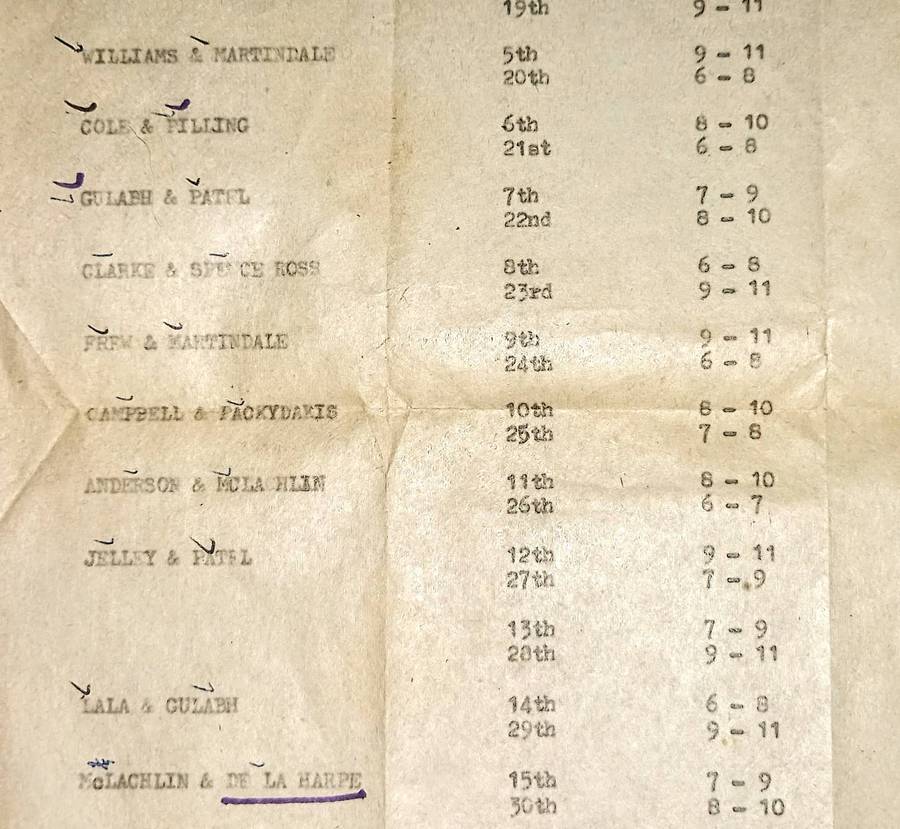 19th 9 - 11
WILLIAMS & MARTINDALE 5th 9 - 11
20th 6 - 8
COLE & PILLING 6th 8 - 10
21st 6 - 8
GULABH & PATEL 7th 7 - 9
22nd 8 - 10
CLARKE & SPENCE ROSS 8th 6 - 8
23rd 9 - 11
FREW & MARTINDALE 9th 9 - 11
24th 6 - 8
CAMPBELL & PACKYDAKIS 10th 8 - 10
25th 7 - 8
ANDERSON & MCLACHLIN 11th 8 - 10
26th 6 - 7
JELLEY & PATEL 12th 9 - 11
27th 7 - 9
13th 7 - 9
28th 9 - 11
LALA & GULABH 14th 6 - 8
29th 9 - 11
McLACHLIN & DE LA HARPE 15th 7 - 9
30th 8 - 10